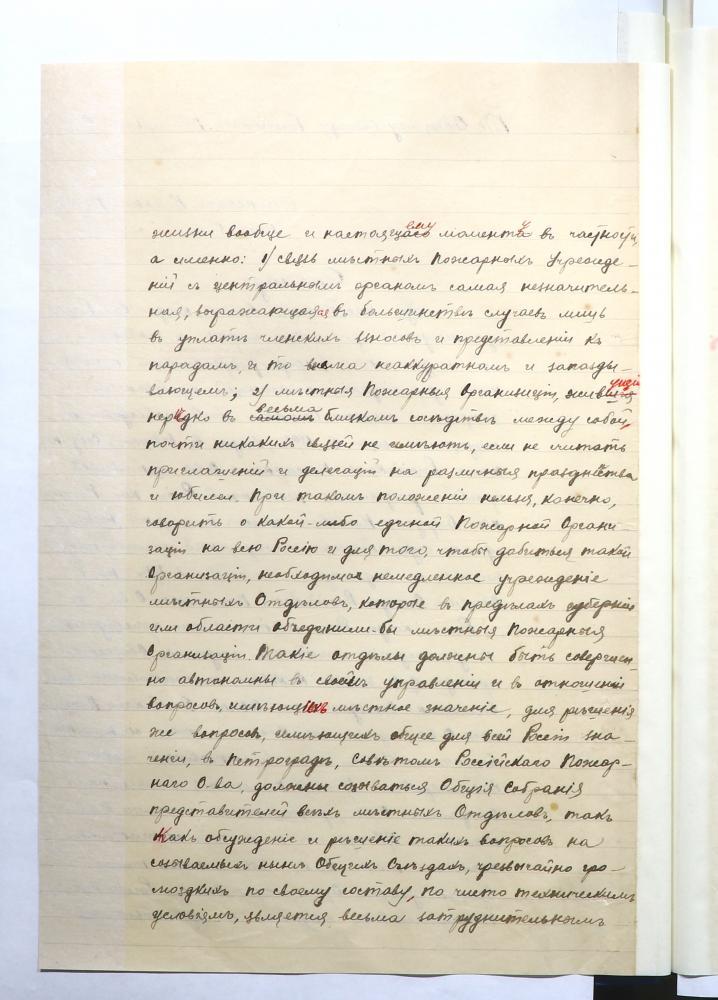 жизни вообще и настоящему моменту въ частности,
а именно: 1) связь мѣстныхъ Пожарныхъ Учрежде-
ній съ центральнымъ органомъ самая незначитель-
ная, выражающаяся въ большинствѣ случаевъ лишь
въ уплатѣ членскихъ взносовъ и представленіи къ
парадамъ, и то весьма неаккуратномъ и запазды-
вающемъ; 2) мѣстныя Пожарныя Организаціи, живущія
нерѣдко въ весьма близкомъ сосѣдствѣ между собой,
почти никакихъ связей не имѣютъ, если не считать
приглашеній и делегацій на различныя празднества
и юбилеи. При такомъ положеніи нельзя, конечно,
говорить о какой-либо единой Пожарной Органи-
заціи на всю Россію и для того, чтобы добиться такой
Организаціи, необходимое немедленное учрежденіе
мѣстныхъ Отдѣловъ, которые въ предѣлахъ губерніи
или области объединили-бы мѣстныя Пожарныя
Организаціи. Такіе отдѣлы должны быть совершен-
но автономны въ своёмъ управленіи и въ отношеніи
вопросовъ, имѣющихъ мѣстное значеніе, для рѣшенія
же вопросовъ, имѣющихъ общее для всей Россіи зна-
ченіе, въ Петроградѣ, Совѣтомъ Россійскаго Пожар-
наго О-ва, должны созываться Общія Собранія
представителей всѣхъ мѣстныхъ Отдѣловъ, такъ
какъ обсужденіе и рѣшеніе такихъ вопросовъ на
созываемыхъ нынѣ Общихъ Съѣздахъ, чрезвычайно гро-
моздкихъ по своему составу, по чисто техническимъ
условіямъ, является весьма затруднительнымъ